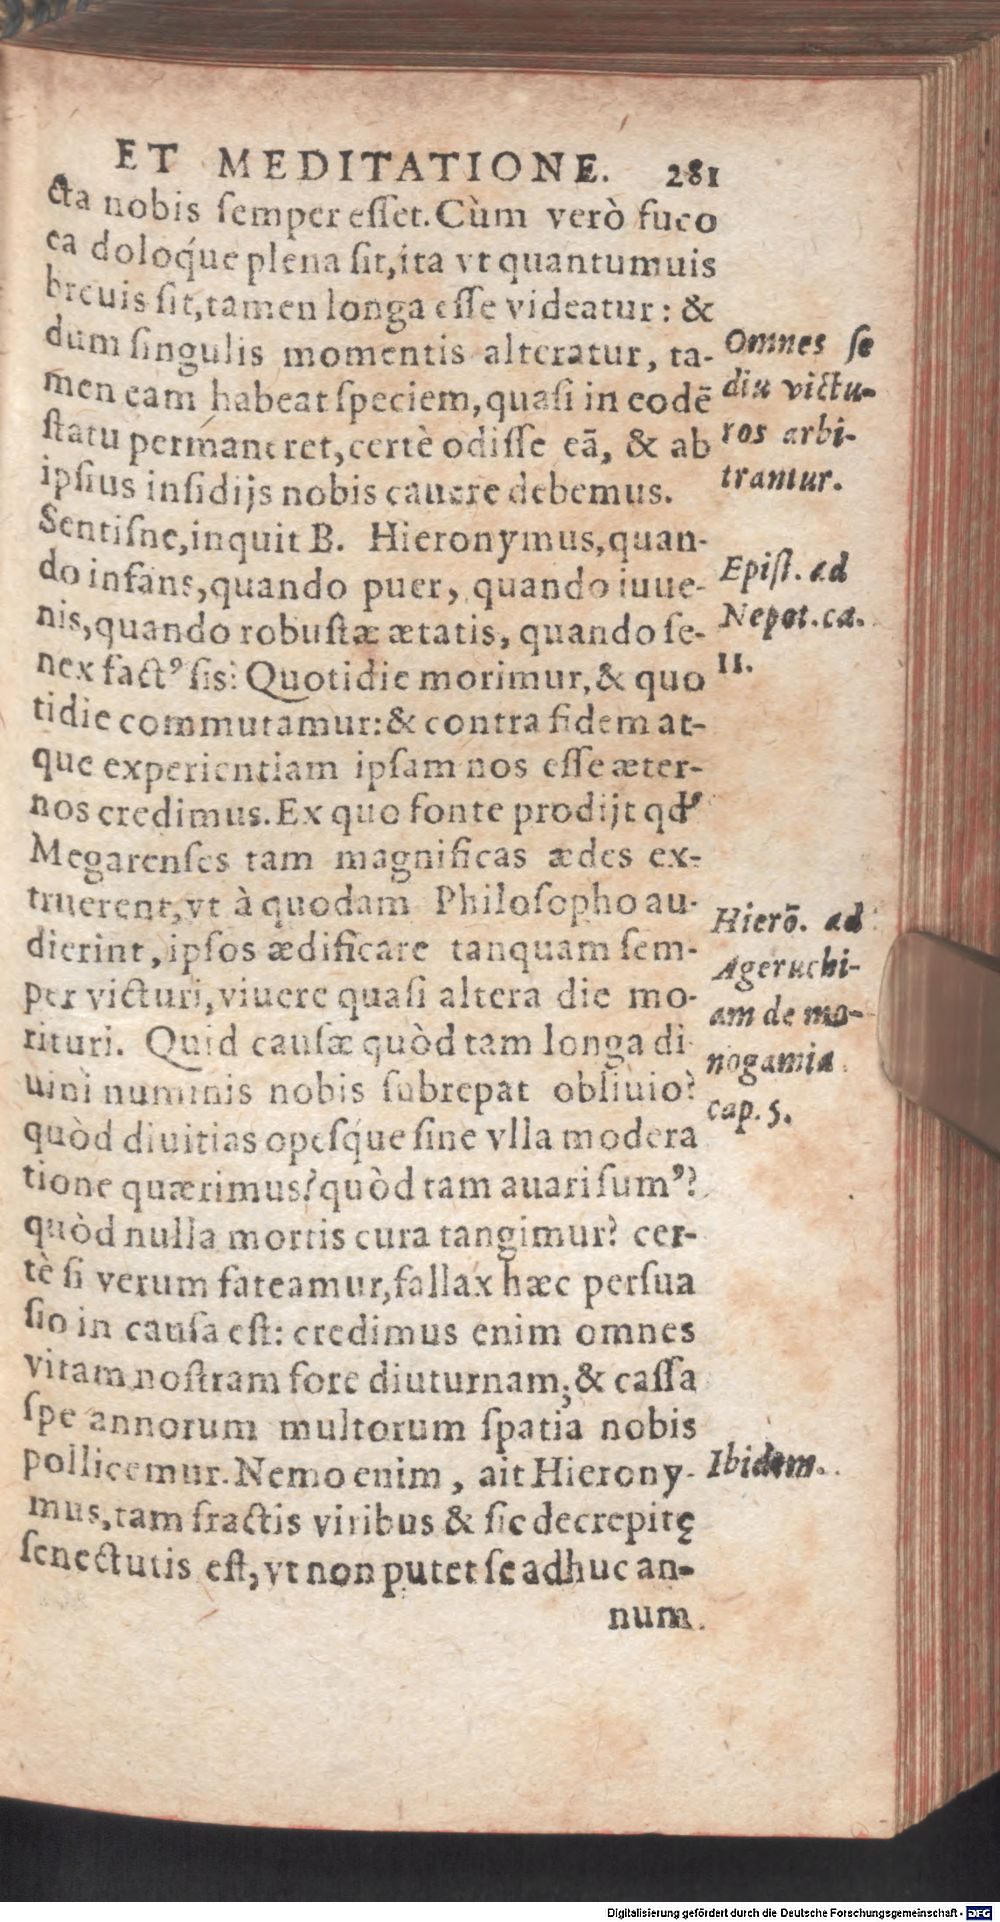 ET MEDITATIONE. 281
cta nobis semper esset. Cùm verò fuco
ea dolóque plena sit, ita vt quantumuis
breuis sit, tamen longa esse videatur: &
dum singulis momentis alteratur, ta-
men eam habeat speciem, quasi in eodē
statu permaneret, certè odisse eā, & ab
ipsius insidijs nobis cauere debemus.
Sentisne, inquit B. Hieronymus, quan-
do infans, quando puer, quando iuue-
nis, quando robustæ ætatis, quando se-
nex factꝰ sis? Quotidie morimur, & quo
tidie commutamur: & contra fidem at-
que experientiam ipsam nos esse æter-
nos credimus. Ex quo fonte prodijt qđ
Megarenses tam magnificas ædes ex-
truerent, vt à quodam Philosopho au-
dierint, ipsos ædificare tanquam sem-
per victuri, viuere quasi altera die mo-
rituri. Quid causæ quòd tam longa di
uini numinis nobis subrepat obliuio?
quòd diuitias opésque sine vlla modera
tione quærimus? quòd tam auari sumꝰ?
quòd nulla mortis cura tangimur? cer-
tè si verum fateamur, fallax hæc persua
sio in causa est: credimus enim omnes
vitam nostram fore diuturnam; & cassa
spe annorum multorum spatia nobis
pollicemur. Nemo enim, ait Hierony-
mus, tam fractis viribus & sic decrepitę
senectutis est, vt non putet se adhuc an-
num
Omnes se
diu victu-
ros arbi-
trantur.
Epist. ad
Nepot. ca.
11.
Hierō. ad
Ageruchi-
am de mo-
nogamia
cap. 5.
Ibidem.
Digitalisierung gefördert durch die Deutsche Forschungsgemeinschaft - DFG